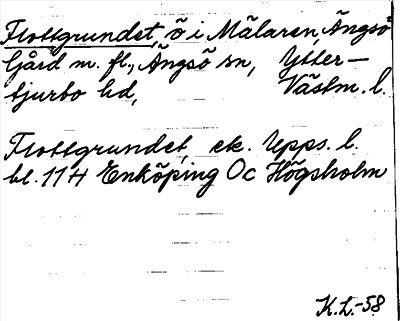 Flottgrundet, ö i Mälaren, Ängsö
Gård m. fl., Ängsö sn, Ytter-
tjurbo hd, Västm. l.
Flottgrundet, ek. Upps. l.
bl. 114 Enköping Oc Högsholm
K.L.-58